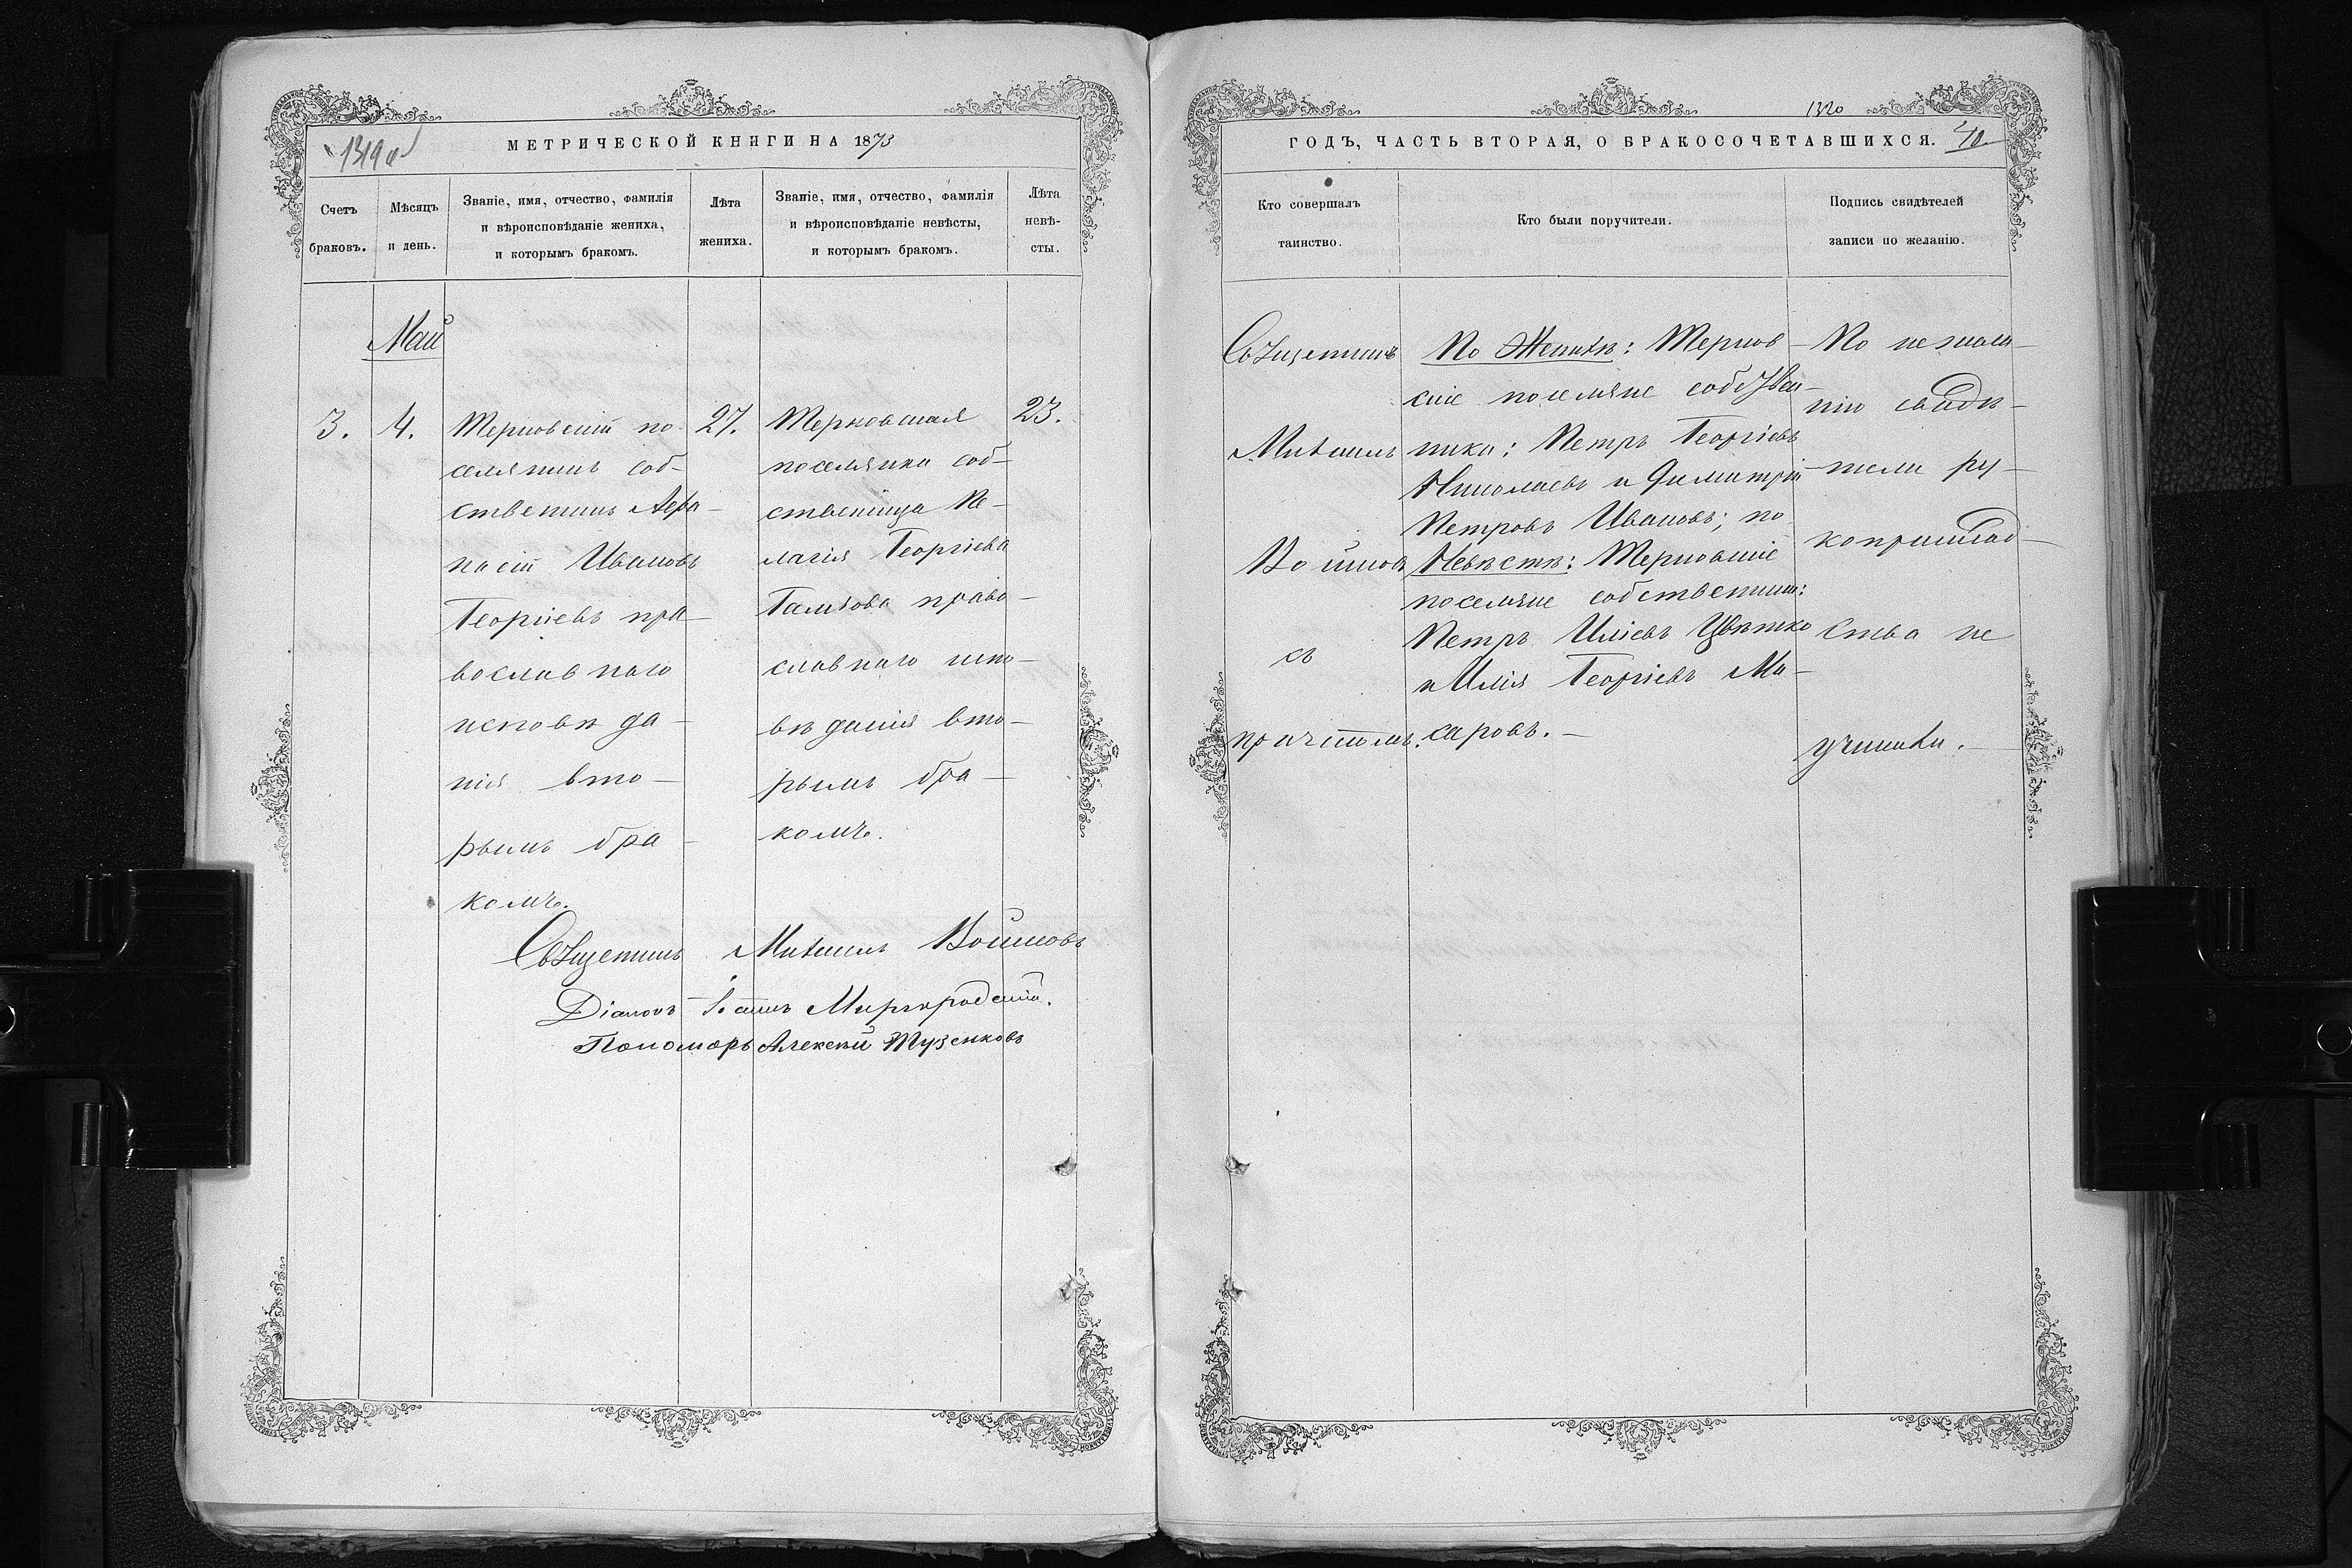 1319 об
МЕТРИЧЕСКОЙ КНИГИ НА 1873
Счетъ
браковъ.
Мѣсяцъ
и день.
Званіе, имя, отчество, фамилія
и вѣроисповѣданіе жениха,
и которымъ бракомъ.
Лѣта
жениха.
Званіе, имя, отчество, фамилія
и вѣроисповѣданіе невѣсты,
и которымъ бракомъ.
Лѣта
невѣ-
сты.
Май
3.
4.
Терновскій по-
селянинъ соб-
ственникъ Афа-
насій Ивановъ
Георгіевъ пра-
вославнаго
исповѣда-
нія вто-
рымъ бра-
комъ.
27.
Терновская
поселянка соб-
ственница Пе-
лагія Георгіева
право-
славнаго испо-
вѣданія вто-
рымъ бра-
комъ.
23.
Священникъ Михаилъ Войновъ
Діаконъ Іоаннъ Миргородскій.
Пономарь Алексѣй Тузенковъ
1320
ГОДЪ, ЧАСТЬ ВТОРАЯ, О БРАКОСОЧЕТАВШИХСЯ.
40.
Кто совершалъ
таинство.
Кто были поручители.
Подпись свидѣтелей
записи по желанію.
Священникъ
Михаилъ
Войновъ
съ
причтомъ.
По Женихѣ: Тернов-
скіе поселяне собствен-
ники: Петръ Георгіевъ
Николаевъ и Димитрій
Петровъ Ивановъ; по
Невѣстѣ: Терновскіе
поселяне собственники:
Петръ Иліевъ Цвѣтко
и Илія Георгіевъ Ма-
саровъ.
По нежела-
нію свидѣ-
тели ру-
коприклад-
ства не
учинили.